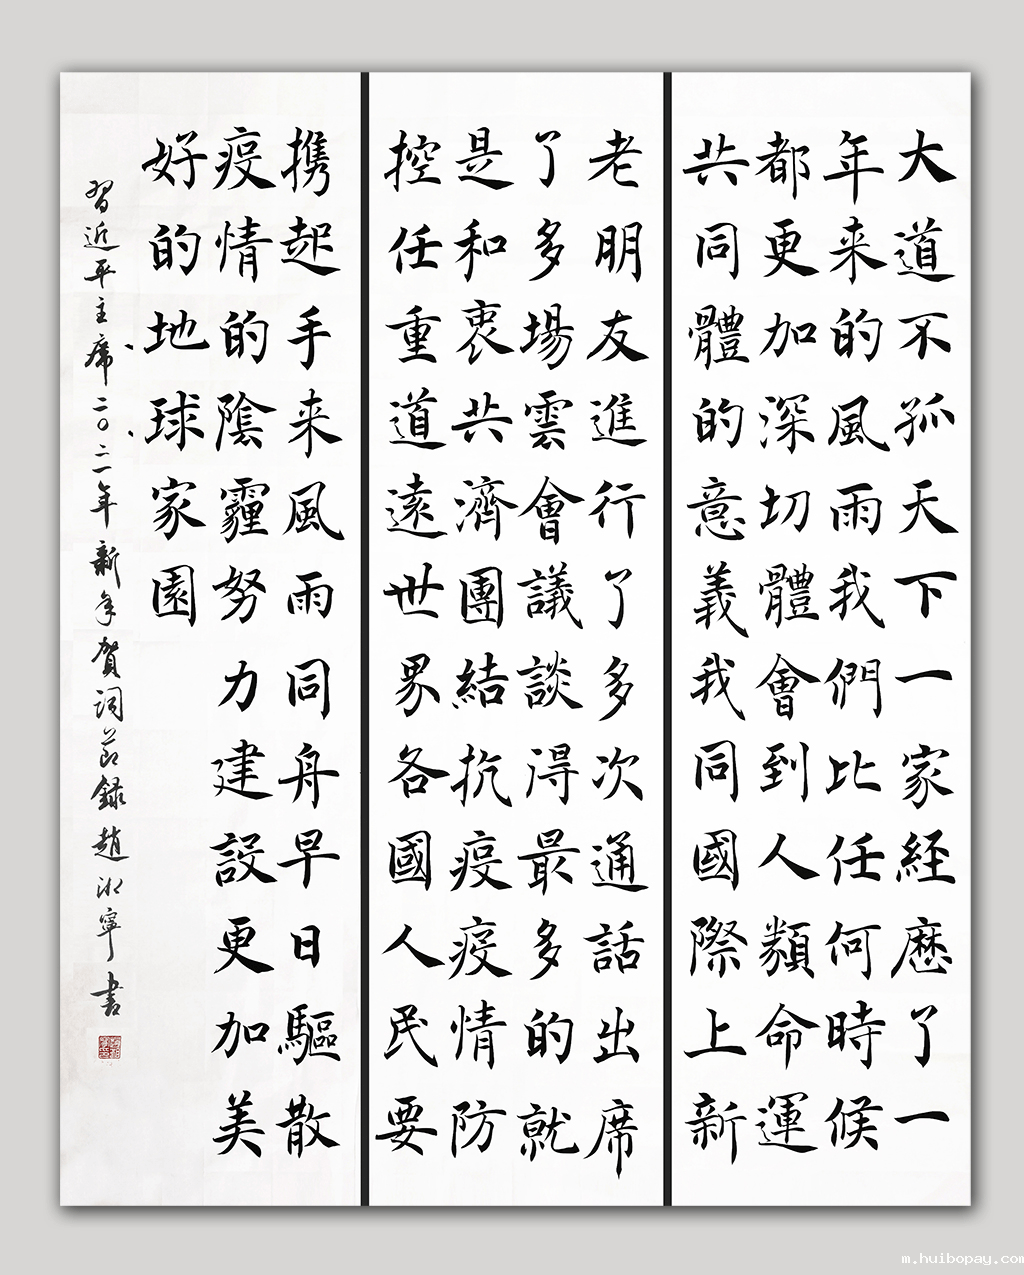 大道不孤天下一家経歷了一
年来的風雨我們比任何時候
都更加深切體會到人類命運
共同體的意義我同國際上新
老朋友進行了多次通話出席
了多場雲會議談得最多的就
是和衷共濟團結抗疫疫情防
控任重道遠世界各國人民要
携起手来風雨同舟早日驅散
疫情的陰霾努力建設更加美
好的地球家園
習近平主席二〇二一年新年賀詞节錄趙寧書
m.huibopay.com